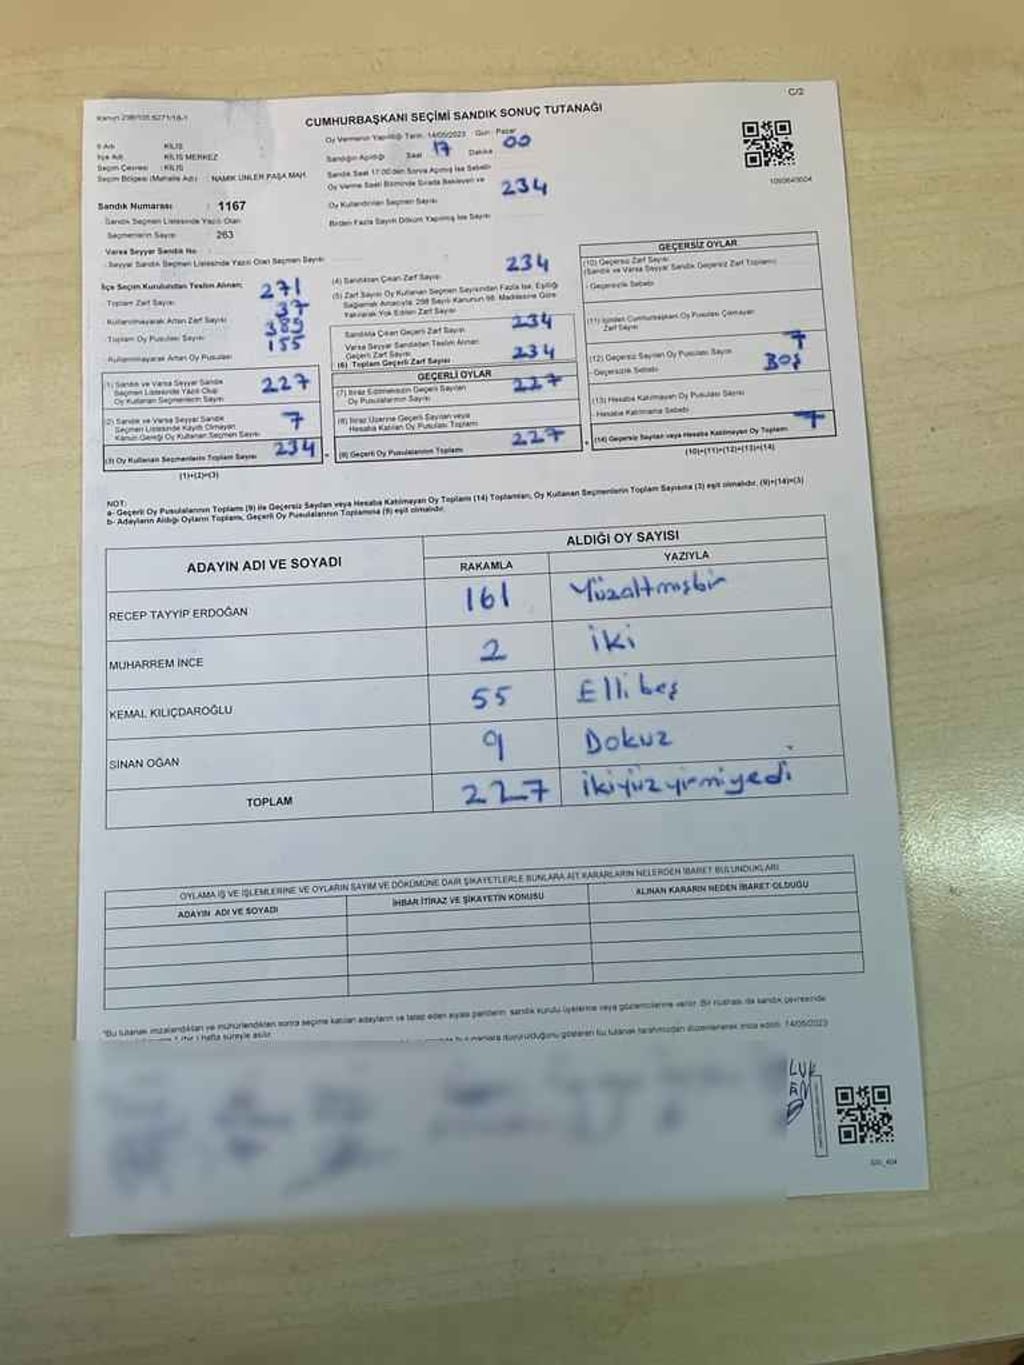 C/2
Kanun 298/105 6271/18-1
CUMHURBAŞKANI SEÇİMİ SANDIK SONUÇ TUTANAĞI
İl Adı : KİLİS
İlçe Adı : KİLİS MERKEZ
Seçim Çevresi : KİLİS
Seçim Bölgesi (Mahalle Adı) : NAMIK ÜNLER PAŞA MAH.
Sandık Numarası : 1167
Sandık Seçmen Listesinde Yazılı Olan
Seçmenlerin Sayısı : 263
Varsa Seyyar Sandık No
Seyyar Sandık Seçmen Listesinde Yazılı Olan Seçmen Sayısı
Oy Vermenin Yapıldığı Tarih: 14/05/2023 Gün: Pazar
Sandığın Açıldığı Saat 17 Dakika 00
Sandık Saat 17:00'den Sonra Açılmış İse Sebebi
Oy Verme Saati Bitiminde Sırada Bekleyen ve
Oy Kullandırılan Seçmen Sayısı 234
Birden Fazla Sayılı Döküm Yapılmış İse Sayısı
İlçe Seçim Kurulundan Teslim Alınan;
Toplam Zarf Sayısı 271
Kullanılmayarak Artan Zarf Sayısı 37
Toplam Oy Pusulası 389
Kullanılmayarak Artan Oy Pusulası 155
(1) Sandık ve Varsa Seyyar Sandık
Seçmen Listesinde Yazılı Olup
Oy Kullanan Seçmenlerin Sayısı 227
(2) Sandık ve Varsa Seyyar Sandık
Seçmen Listesinde Kayıtlı Olmayan
Kanun Gereği Oy Kullanan Seçmen Sayısı 7
(3) Oy Kullanan Seçmenlerin Toplam Sayısı 234
(1)+(2)=(3)
(4) Sandıktan Çıkan Zarf Sayısı 234
(5) Zarf Sayısı Oy Kullanan Seçmen Sayısından Fazla İse, Eşitliği
Sağlamak Amacıyla, 298 Sayılı Kanunun 98. Maddesine Göre
Yakılarak Yok Edilen Zarf Sayısı
Sandıkta Çıkan Geçerli Zarf Sayısı 234
Varsa Seyyar Sandıktan Teslim Alınan
Geçerli Zarf Sayısı
(6) Toplam Geçerli Zarf Sayısı 234
GEÇERLİ OYLAR
(7) İtiraz Edilmeksizin Geçerli Sayılan
Oy Pusulalarının Sayısı 227
(8) İtiraz Üzerine Geçerli Sayılan veya
Hesaba Katılan Oy Pusulası Toplamı
(9) Geçerli Oy Pusulalarının Toplamı 227
GEÇERSİZ OYLAR
(10) Geçersiz Zarf Sayısı
(Sandık ve Varsa Seyyar Sandık Geçersiz Zarf Toplamı)
- Geçersizlik Sebebi
(11) İçinden Cumhurbaşkanı Oy Pusulası Çıkmayan
Zarf Sayısı
(12) Geçersiz Sayılan Oy Pusulası Sayısı 7
- Geçersizlik Sebebi Boş
(13) Hesaba Katılmayan Oy Pusulası Sayısı
- Hesaba Katılmama Sebebi
(14) Geçersiz Sayılan veya Hesaba Katılmayan Oy Toplamı 7
(10)+(11)+(12)+(13)=(14)
NOT:
a- Geçerli Oy Pusulalarının Toplamı (9) ile Geçersiz Sayılan veya Hesaba Katılmayan Oy Toplamı (14) Toplamları, Oy Kullanan Seçmenlerin Toplam Sayısına (3) eşit olmalıdır. (9)+(14)=(3)
b- Adayların Aldığı Oyların Toplamı, Geçerli Oy Pusulalarının Toplamına (9) eşit olmalıdır.
ADAYIN ADI VE SOYADI
ALDIĞI OY SAYISI
RAKAMLA YAZIYLA
RECEP TAYYİP ERDOĞAN 161 Yüzaltmışbir
MUHARREM İNCE 2 iki
KEMAL KILIÇDAROĞLU 55 Ellibeş
SİNAN OĞAN 9 Dokuz
TOPLAM 227 ikiyüzyirmiyedi
OYLAMA İŞ VE İŞLEMLERİNE VE OYLARIN SAYIM VE DÖKÜMÜNE DAİR ŞİKAYETLERLE BUNLARA AİT KARARLARIN NELERDEN İBARET BULUNDUKLARI
ADAYIN ADI VE SOYADI İHBAR İTİRAZ VE ŞİKAYETİN KONUSU ALINAN KARARIN NEDEN İBARET OLDUĞU
"Bu tutanak imzalandıktan ve mühürlendikten sonra seçime katılan adayların ve talep eden siyasi partilerin sandık kurulu üyelerine veya gözlemcilerine verilir. Bir nüshası da sandık çevresinde
1 (bir) hafta süreyle asılır.
duyurulduğunu gösteren bu tutanak tarafımızdan düzenlenerek imza edildi. 14/05/2023